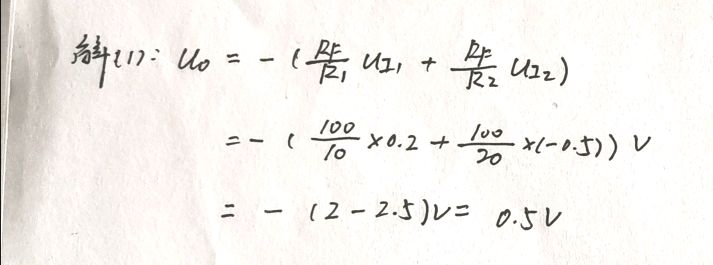 解(1): U₀ = - (RF/R₁ UI₁ + RF/R₂ UI₂)
= - (100/10 ×0.2 + 100/20 ×(-0.5)) V
= - (2-2.5)V = 0.5V